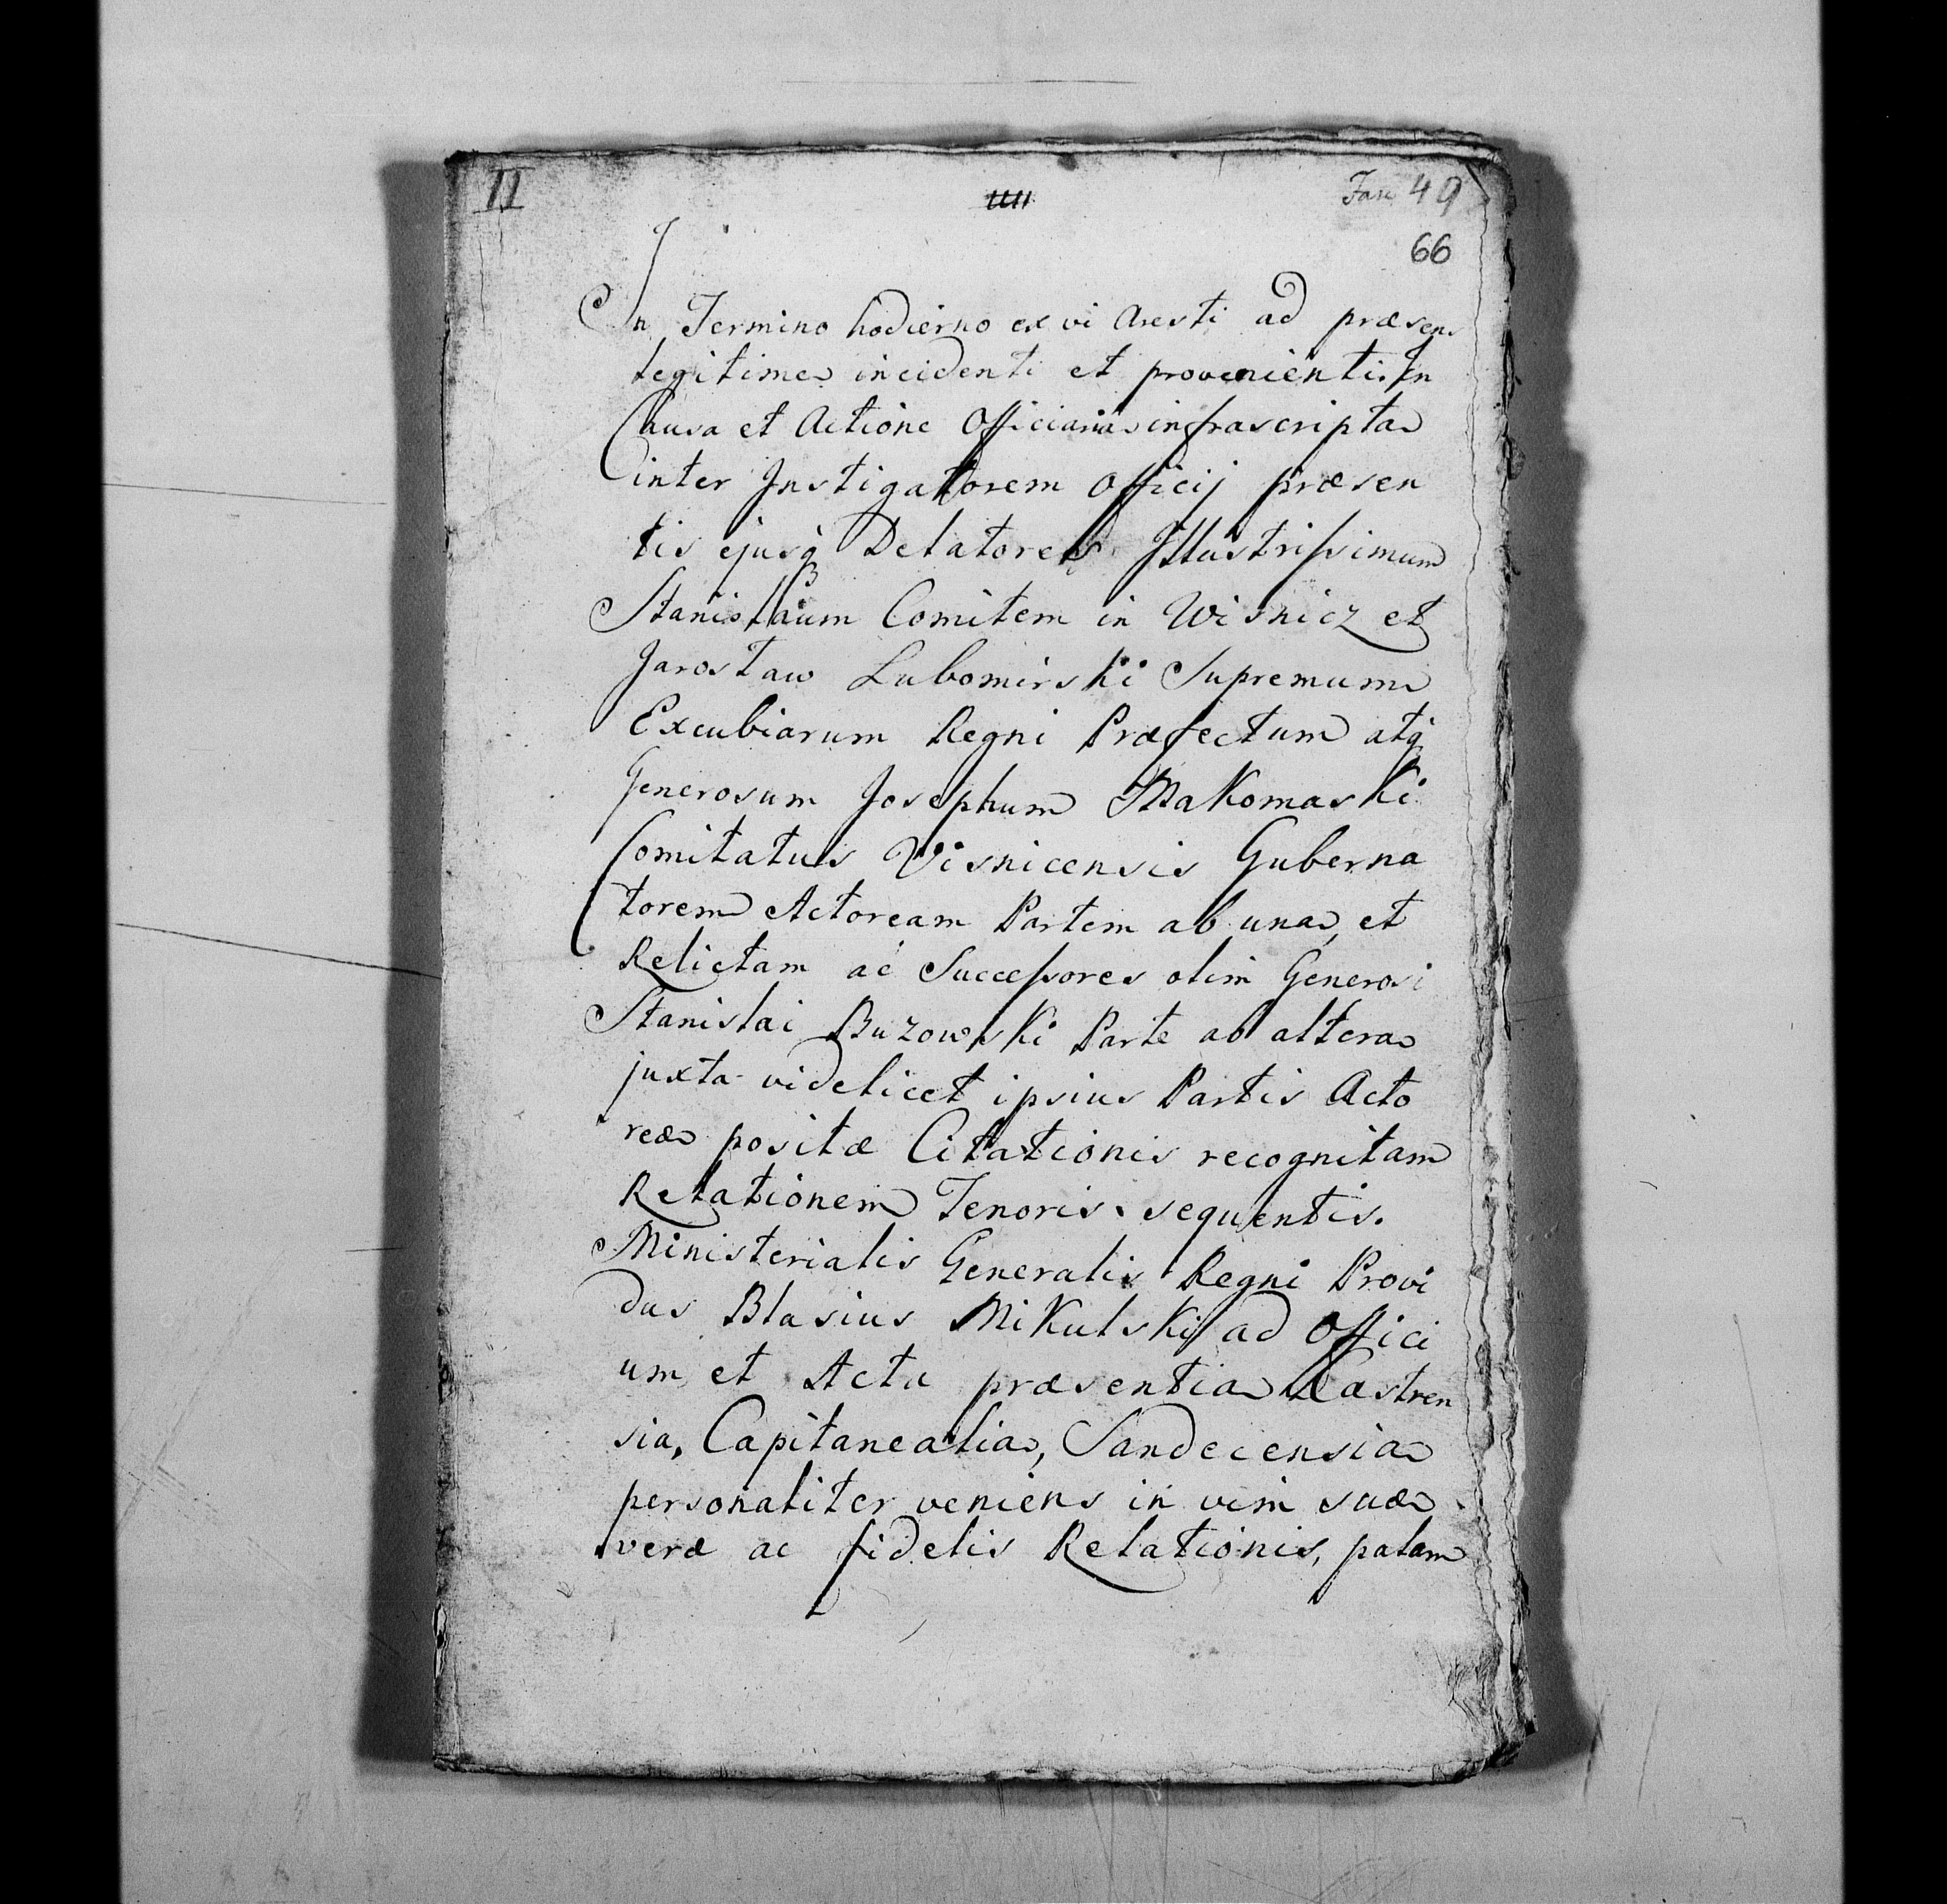 11
Fasc 49
66
In Termino hodierno ex vi Aresti ad præsens
legitime incidenti et provenienti. In
Causa et Actione Officiaria infrascripta
inter Instigatorem Officij præsen
tis ejusq Delatores Illustrissimum
Stanislaum Comitem in Wisnicz et
Jarosław Lubomirski Supremum
Excubiarum Regni Præfectum atq
Generosum Josephum Makomaski
Comitatus Visnicensis Guberna
torem Actoream Partem ab una, et
Relictam ac Successores olim Generosi
Stanislai Buzowski Parte ab altera
juxta videlicet ipsius Partis Acto
reæ positæ Citationis recognitam
Relationem Tenoris sequentis.
Ministerialis Generalis Regni Provi
dus Blasius Mikulski ad Offici
um et Acta præsentia Castren
sia, Capitanealia, Sandecensia
personaliter veniens in vim suæ
veræ ac fidelis Relationis, palam